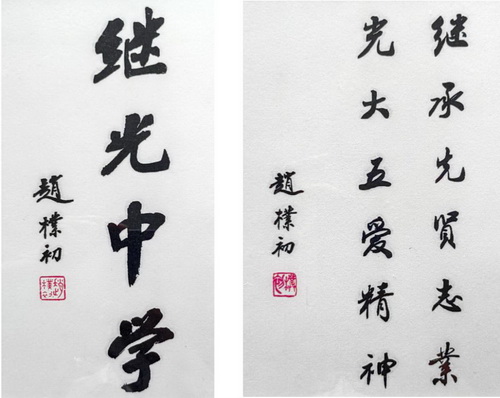 继光中学
趙樸初
继承先贤志業
光大五爱精神
趙樸初